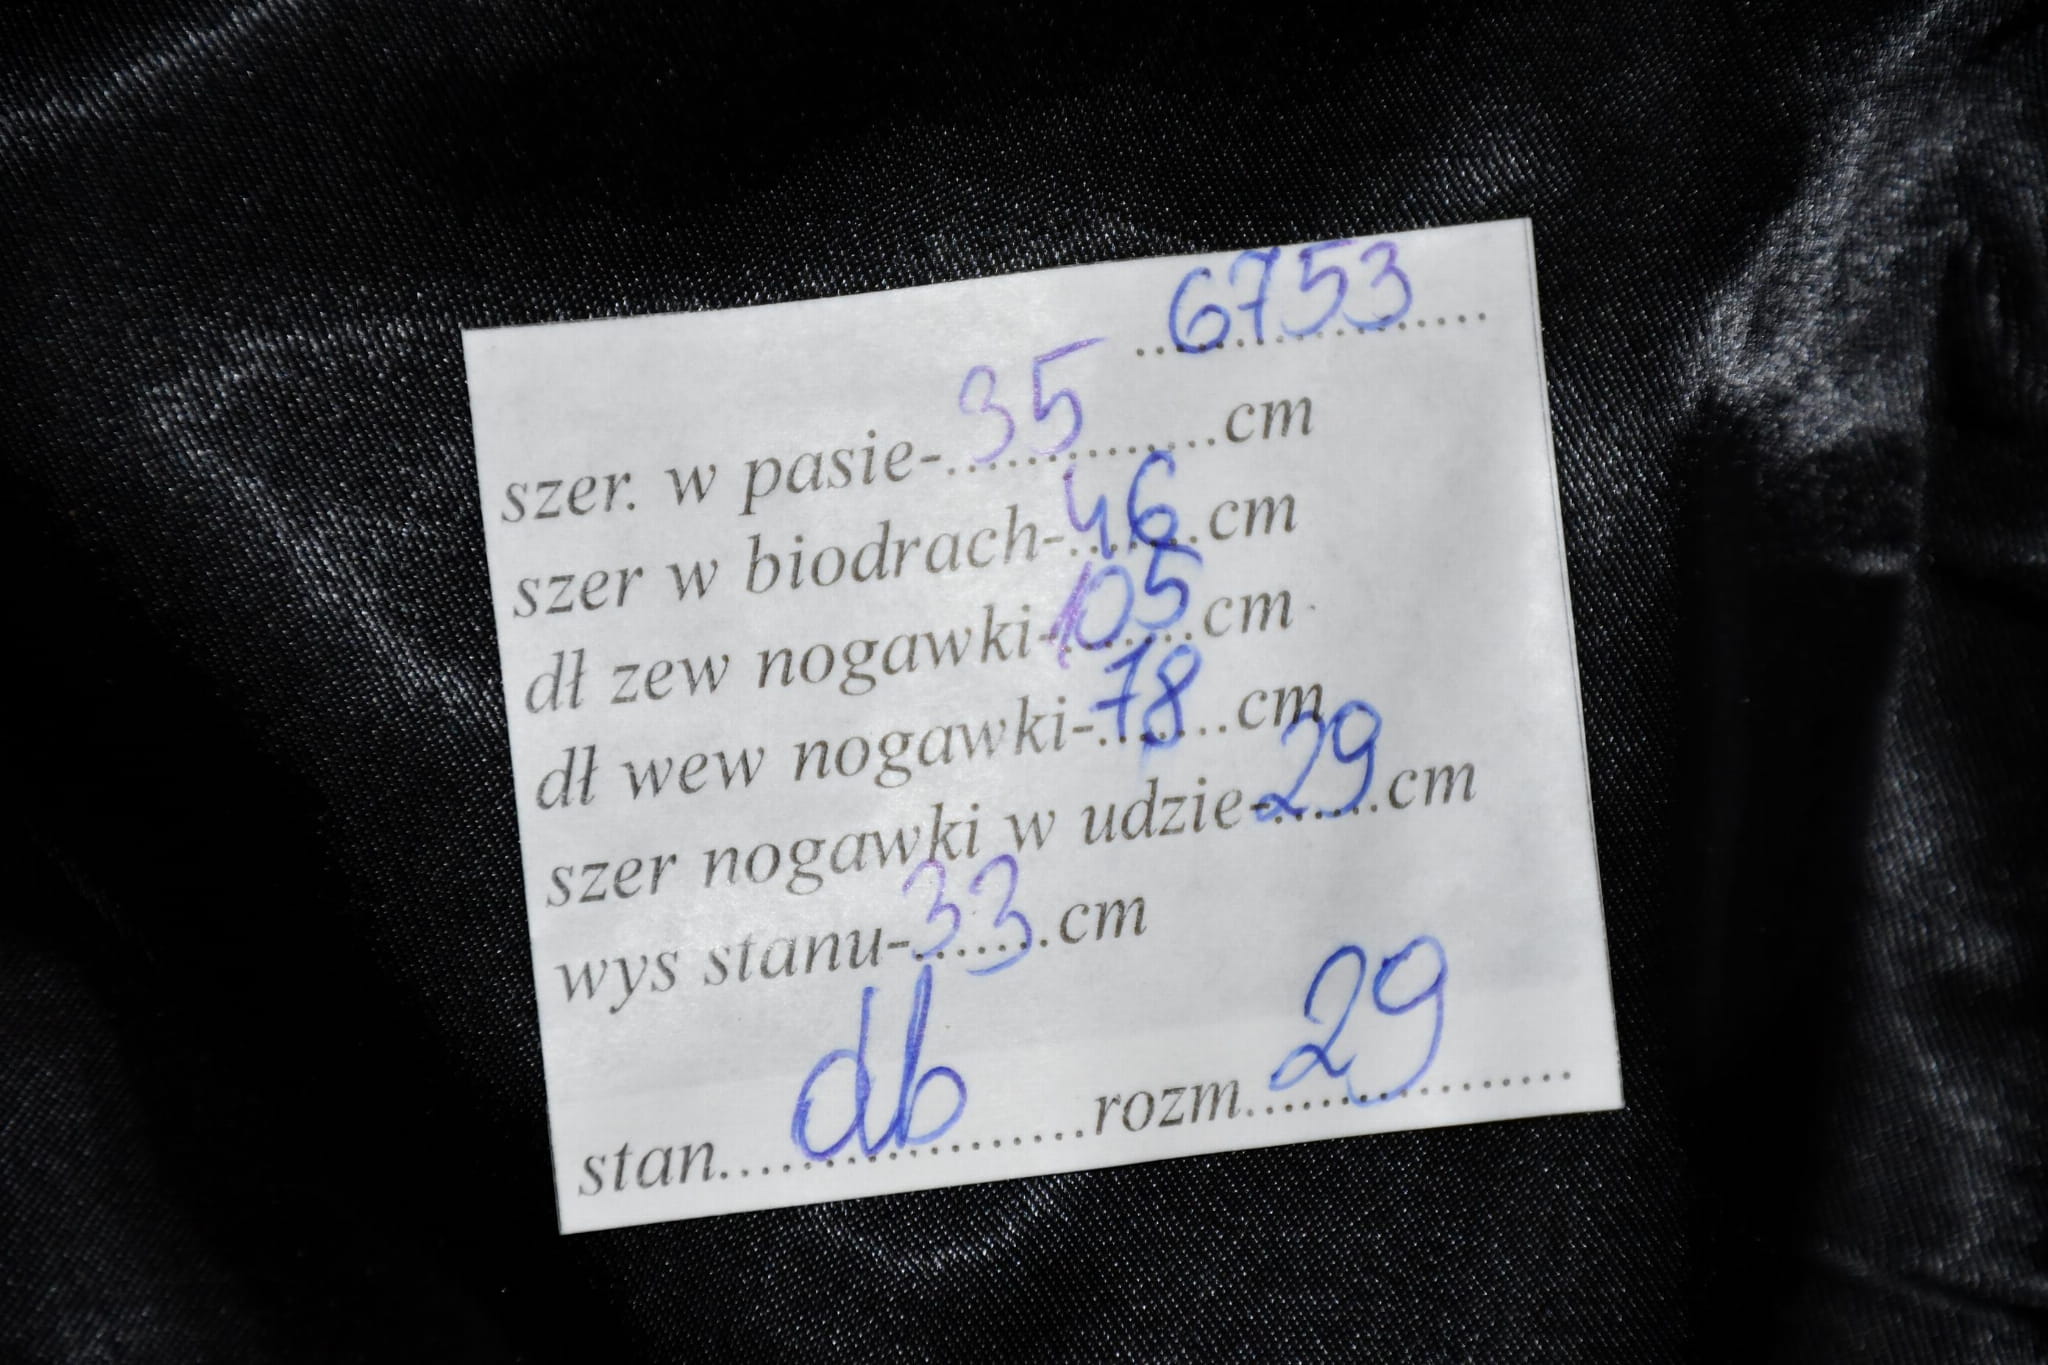 6753
szer. w pasie-35cm
szer w biodrach-46cm
dł zew nogawki-105cm
dł wew nogawki-78cm
szer nogawki w udzie-29cm
wys stanu-33cm
stan....db....rozm....29....